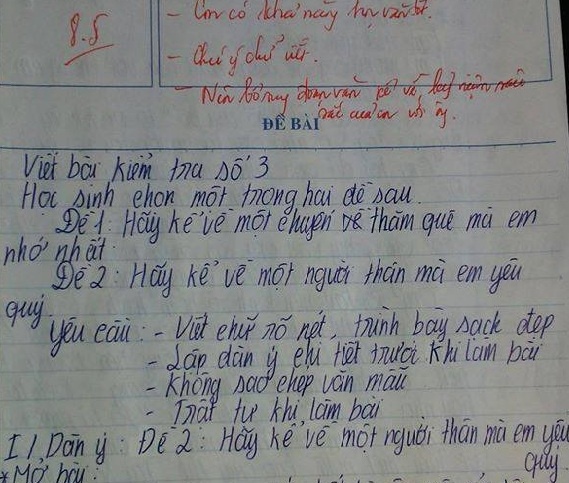 8.5
- Con có khả năng học văn tốt.
- Chú ý chữ viết.
- Nên bổ sung đoạn văn kể về
của con với ông.
ĐỀ BÀI
Viết bài kiểm tra số 3
Học sinh chọn một trong hai đề sau.
Đề 1: Hãy kể về một chuyến về thăm quê mà em
nhớ nhất.
Đề 2: Hãy kể về một người thân mà em yêu
quý.
Yêu cầu: - Viết chữ rõ nét, trình bày sạch đẹp
- Lập dàn ý chi tiết trước khi làm bài
- Không sao chép văn mẫu
- Trật tự khi làm bài
I / Dàn ý: Đề 2: Hãy kể về một người thân mà em yêu
quý.
* Mở bài: